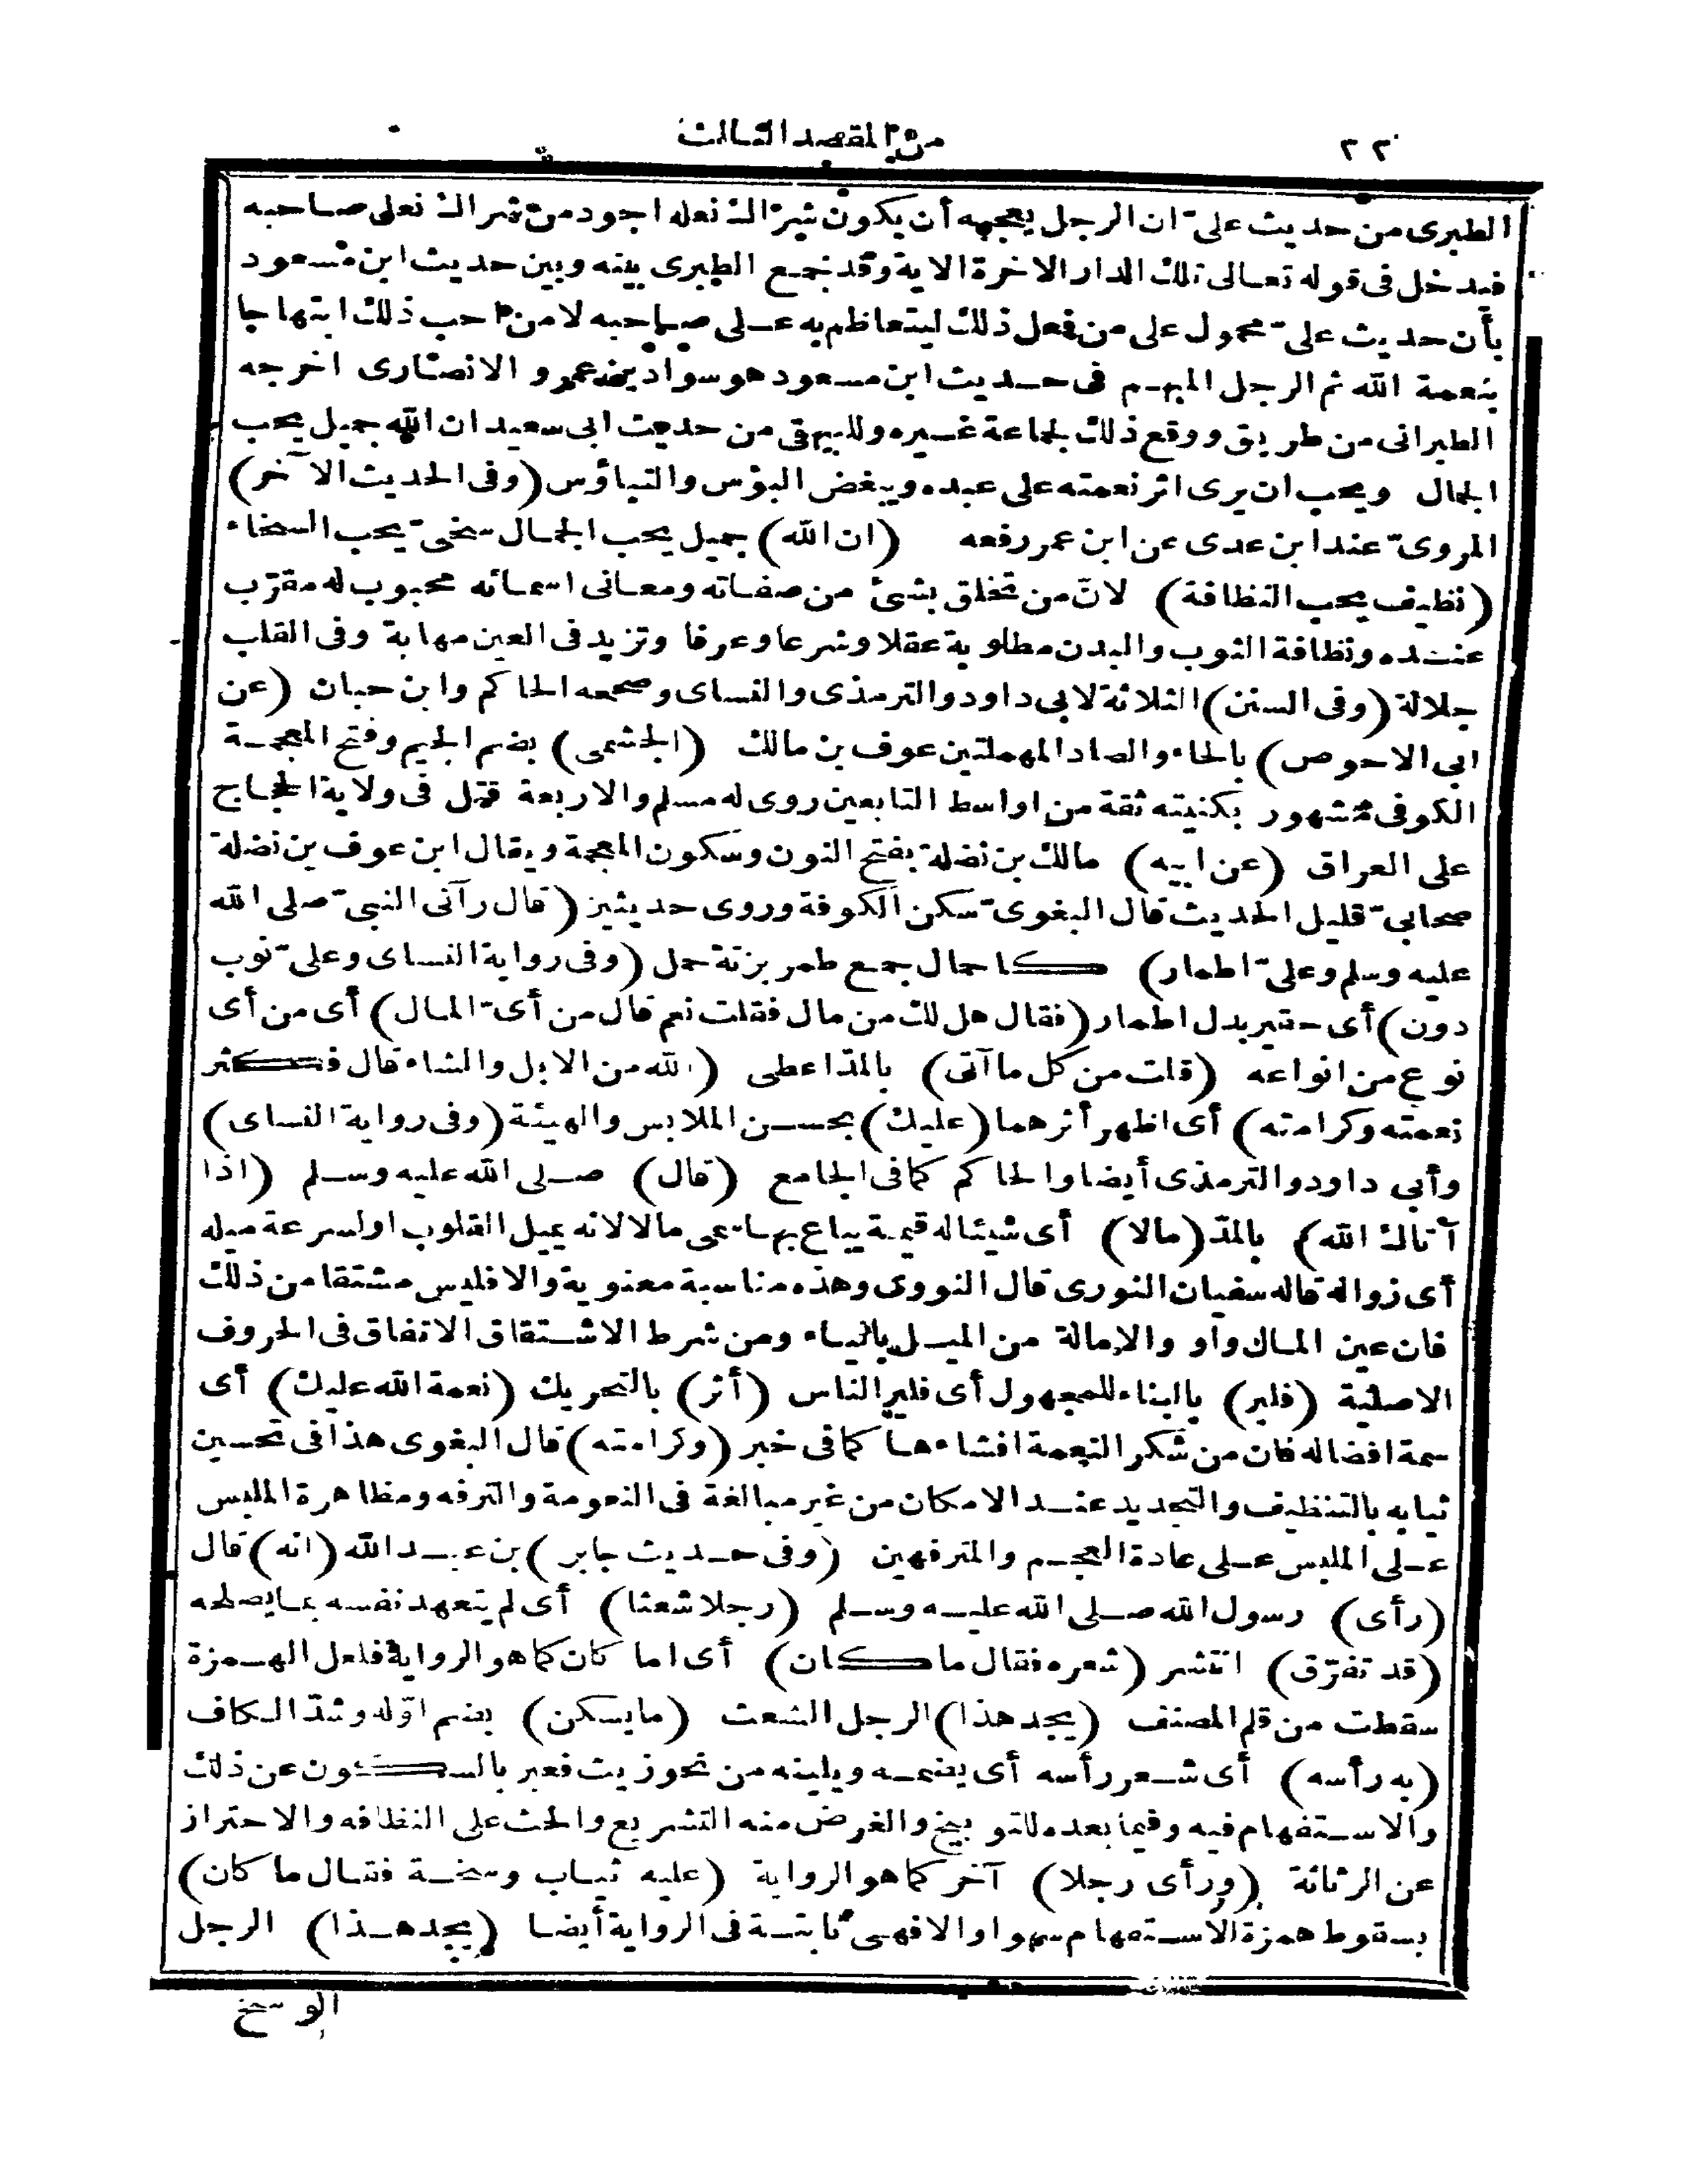 ٢٢ من المقصد الثالث
الطبرى من حديث على ان الرجل يعجبه أن يكون شراك نعله اجود من شراك نعلى صاحبه
فيدخل فى قوله تعالى تلك الدار الاخرة الاية وقد جمع الطبرى بينه وبين حديث ابن مسعود
بأن حديث علىّ محمول على من فعل ذلك ليتعاظم به عـلى صاحبه لا من احب ذلك ابتهاجا
بنعمة الله ثم الرجل المبهم فى حديث ابن مسعود هو سواد بن عمرو الانصارى اخرجه
الطبرانى من طريق ووقع ذلك لجماعة غيره وللبيهقى من حديث ابى سعيد ان الله جميل يحب
الجمال ويحب ان يرى اثر نعمته على عبده ويبغض البؤس والتباؤس (وفى الحديث الآخر)
المروىّ عند ابن عدى عن ابن عمر رفعه (ان الله) جميل يحب الجمال سخىّ يحب السخاء
(نظيف يحب النظافة) لانّ من تخلق بشئ من صفاته ومعانى اسمائه محبوب له مقرّب
عنده ونظافة الثوب والبدن مطلوبة عقلا وشرعا وعرفا وتزيد فى العين مهابة وفى القلب
جلالة (وفى السنن) الثلاثة لابى داود والترمذى والنساى وصححه الحاكم وابن حبان (عن
ابى الاحوص) بالحاء والصاد المهملتين عوف بن مالك (الجشمى) بضم الجيم وفتح المعجمة
الكوفى مشهور بكنيته ثقة من اواسط التابعين روى له مسلم والاربعة قتل فى ولاية الحجاج
على العراق (عن ابيه) مالك بن نضلة بفتح النون وسكون المعجمة ويقال ابن عوف بن نضلة
صحابىّ قليل الحديث قال البغوىّ سكن الكوفة وروى حديثين (قال رآنى النبىّ صلى الله
عليه وسلم وعلىّ اطمار) كاحمال جمع طمر بزنة حمل (وفى رواية النساى وعلىّ ثوب
دون) أى حقير بدل اطمار (فقال هل لك من مال فقلت نعم قال من أىّ المال) أى من أى
نوع من انواعه (قلت من كل ما آتى) بالمدّ اعطى (الله من الابل والشاء قال فكثر
نعمته وكرامته) أى اظهر أثرهما (عليك) بحسن الملابس والهيئة (وفى رواية النساى)
وأبى داود والترمذى أيضا والحاكم كما فى الجامع (قال) صلى الله عليه وسلم (اذا
آتاك الله) بالمدّ (مالا) أى شيئا له قيمة يباع بها سمى مالا لانه يميل القلوب او لسرعة ميله
أى زواله قاله سفيان الثورى قال النووى وهذه مناسبة معنوية والا فليس مشتقا من ذلك
فان عين المال واو والامالة من الميل بالياء ومن شرط الاشتقاق الاتفاق فى الحروف
الاصلية (فلير) بالبناء للمجهول أى فلير الناس (أثر) بالتحريك (نعمة الله عليك) أى
سمة افضاله فان من شكر النعمة افشاءها كما فى خبر (وكرامته) قال البغوى هذا فى تحسين
ثيابه بالتنظيف والتجديد عند الامكان من غير مبالغة فى النعومة والترفه ومظاهرة الملبس
على الملبس على عادة العجم والمترفهين (وفى حديث جابر) بن عبد الله (انه) قال
(رأى) رسول الله صلى الله عليه وسلم (رجلا شعثا) أى لم يتعهد نفسه بما يصلحه
(قد تفرّق) انتشر (شعره فقال ما كان) أى اما كان كما هو الرواية فلعل الهمزة
سقطت من قلم المصنف (يجد هذا) الرجل الشعث (ما يسكن) بضم اوّله وشدّ الكاف
(به رأسه) أى شعر رأسه أى يضمه ويلينه من نحو زيت فعبر بالسكون عن ذلك
والاستفهام فيه وفيما بعده للتوبيخ والغرض منه التشريع والحث على النظافه والاحتراز
عن الرثاثة (ورأى رجلا) آخر كما هو الرواية (عليه ثياب وسخة فقال ما كان)
بسقوط همزة الاستفهام سهوا والا فهى ثابتة فى الرواية أيضا (يجد هذا) الرجل
الوسخ